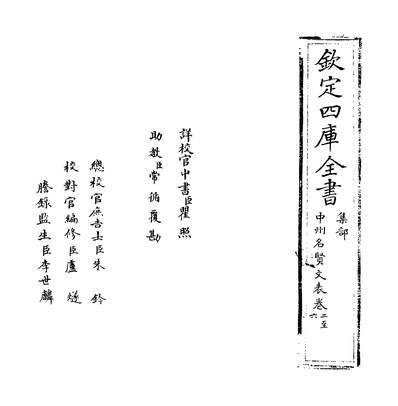 欽定四庫全書
集部
中州名賢文表卷二至六
詳校官中書臣瞿照
助教臣常循覆勘
總校官庶吉士臣朱鈐
校對官編修臣盧遂
謄錄監生臣李世麟